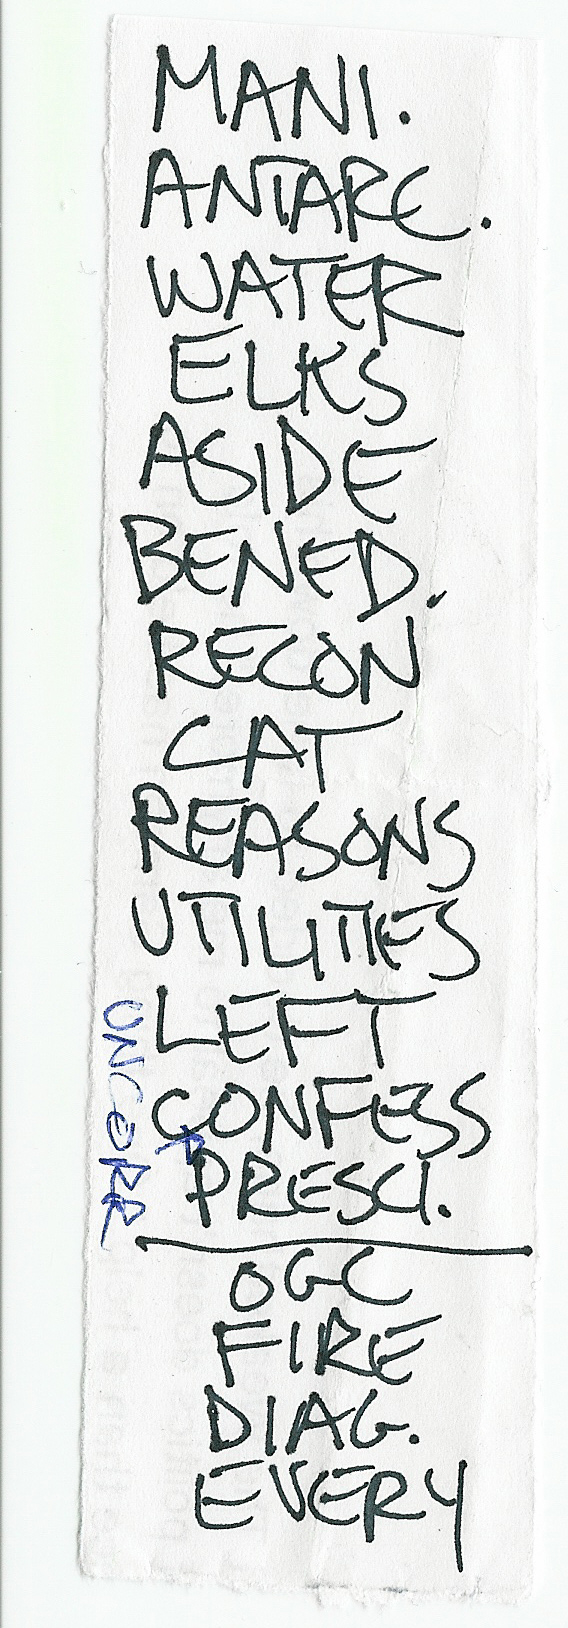 MANI.
ANTARC.
WATER
ELKS
ASIDE
BENED.
RECON
CAT
REASONS
UTILITIES
LEFT
UNCORR
CONFESS
PRESCI.
OGC
FIRE
DIAG.
EVERY